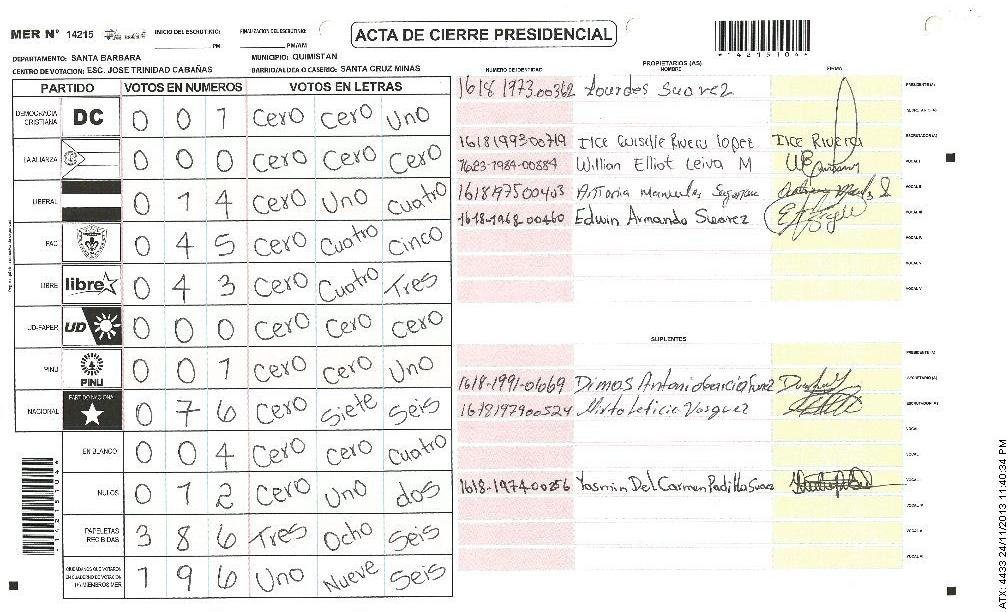 MER N° 14215
INICIO DEL ESCRUTINIO: PM
FINALIZACION DEL ESCRUTINIO: PM/AM
ACTA DE CIERRE PRESIDENCIAL
*1421504*
DEPARTAMENTO: SANTA BARBARA
MUNICIPIO: QUIMISTAN
CENTRO DE VOTACION: ESC. JOSE TRINIDAD CABAÑAS
BARRIO/ALDEA O CASERIO: SANTA CRUZ MINAS
PARTIDO VOTOS EN NUMEROS VOTOS EN LETRAS
DEMOCRACIA CRISTIANA DC 0 0 1 Cero Cero Uno
LA ALIANZA 0 0 0 Cero Cero Cero
LIBERAL 0 1 4 Cero Uno Cuatro
PAC 0 4 5 Cero Cuatro Cinco
LIBRE libre 0 4 3 Cero Cuatro Tres
UD-FAPER UD 0 0 0 Cero Cero Cero
PINU PINU 0 0 1 Cero Cero Uno
NACIONAL PARTIDO NACIONAL 0 7 6 Cero Siete Seis
EN BLANCO 0 0 4 Cero Cero Cuatro
NULOS 0 1 2 Cero Uno dos
PAPELETAS RECIBIDAS 3 8 6 Tres Ocho Seis
CIUDADANOS QUE VOTARON EN CUADERNO DE VOTACION (+) MIEMBROS MER 1 9 6 Uno Nueve Seis
PROPIETARIOS (AS)
NUMERO DE IDENTIDAD NOMBRE FIRMA
1618 1973 00362 Lourdes Suarez PRESIDENTE (A)
SECRETARIO (A)
16181993-00719 Rivera Lopez Rivera ESCRUTADOR (A)
1623-1984-00884 Willian Elliot Leiva M VOCAL I
1618197500403 Antonia Manuela VOCAL II
1618-1968-00460 Edwin Armando Suarez VOCAL III
VOCAL IV
VOCAL V
SUPLENTES
PRESIDENTE (A)
1618-1991-01669 Dimas Antonio Garcia SECRETARIO (A)
1618197900524 Mirta Leticia Vasquez ESCRUTADOR (A)
VOCAL I
VOCAL II
1618-1974-00256 Yasmin Del Carmen Padilla Suarez VOCAL III
VOCAL IV
VOCAL V
ATX: 4433 24/11/2013 11:40:34 PM